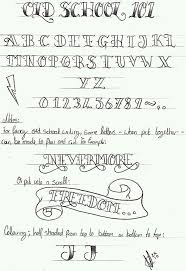 OLD SCHOOL 101
ABCDEFGHIJKL
MNOPQRSTUVWX
YZ
1234567890
For fancy old school writing, some letters - when put together -
can be made to flow and red for example:
NEVERMORE
Or put into a scroll:
FREEDOM...
Colouring; half shaded from top to bottom or bottom to top:
J J